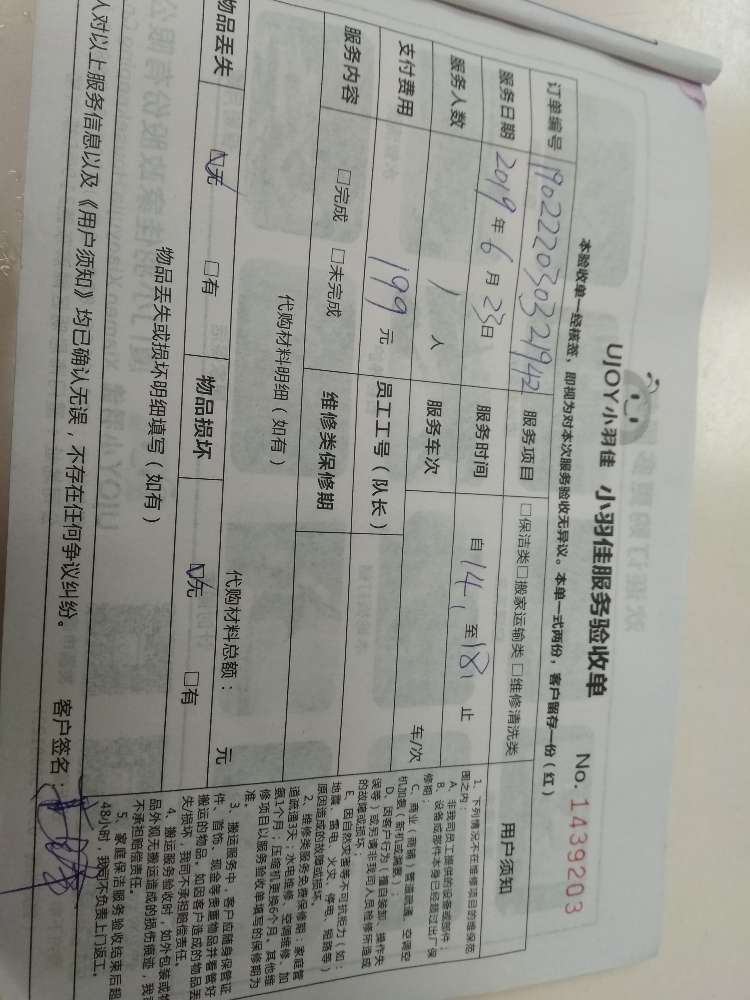 UJOY小羽佳 小羽佳服务验收单 No. 1439203
本验收单一经核签，即视为对本次服务验收无异议。本单一式两份，客户留存一份（红）
订单编号 19022203032 服务项目 □保洁类□搬家运输类□维修清洗类
服务日期 2019年6月23日 服务时间 自14：至18：止
服务人数 1人 服务车次 车/次
支付费用 199元 员工工号（队长）
服务内容 □完成 □未完成 维修类保修期
代购材料明细（如有） 代购材料总额： 元
物品丢失 ☑无 □有 物品损坏 ☑无 □有
物品丢失或损坏明细填写（如有）
人对以上服务信息以及《用户须知》均已确认无误，不存在任何争议纠纷。 客户签名：
用户须知
1、下列情况不在维修项目的维保范
围之内：
A、非我司员工提供的设备或部件；
B、设备或部件本身已经超过出厂保
修期；
C、商业（商铺）管道疏通、空调空
机加氨（新机或满氨）；
D、因客户行为（擅自装卸、操作失
误等）或另请非我司人员检修所造成
的故障或损坏；
E、因自然灾害等不可抗拒力（如：
地震、雷电、火灾、停电、短路等）
原因造成的故障或损坏。
2、维修类服务免费保修期：家庭管
道疏通3天；水电维修、空调维修、加
氨1个月；压缩机更换6个月。其他维
修项目以服务验收单填写的保修期为
准。
3、搬运服务中，客户应随身保管证
件、首饰、现金等贵重物品并看管好
搬运的物品。如因客户造成的物品丢
失/损坏，我司不承担赔偿责任。
4、搬运服务验收时，如外包装或物
品外观无搬运造成的损伤痕迹，我司
不承担赔偿责任。
5、家庭保洁服务验收结束后超
48小时，我司不负责上门返工。